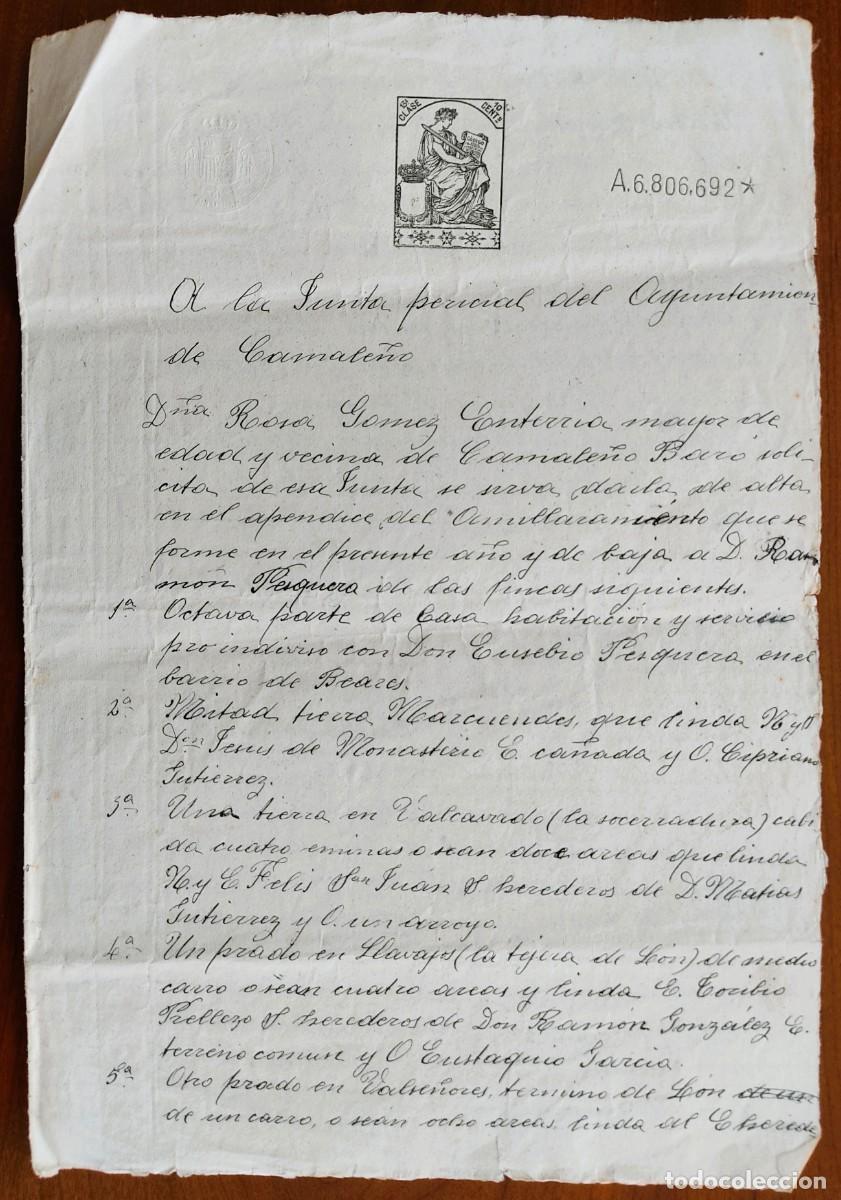 15ª CLASE 10 CENTS
A.6.806,692*
A la Junta pericial del Ayuntamien
de Camaleño
Dña Rosa Gomez Enterria mayor de
edad y vecina de Camaleño Baró soli-
cita de esa Junta se sirva darla de alta
en el apendice del Amillaramiento que se
forme en el presente año y de baja a D. Ra-
món Pesquera de las fincas siguientes.
1ª Octava parte de Casa habitación y servicio
proindiviso con Don Eusebio Pesquera en el
barrio de Beares.
2ª Mitad tierra Marcuendes, que linda N y S
Don Jesus de Monasterio E. cañada y O. Cipriano
Gutierrez.
3ª Una tierra en Valcavado (la socerradura) cabi-
da cuatro eminas o sean doce areas que linda
N. y E. Felis San Juán S. herederos de D. Matias
Gutierrez y O. un arroyo.
4ª Un prado en Llavajos (la tejera de Lón) de medio
carro o sean cuatro areas y linda E. Toribio
Prellezo S. herederos de Don Ramón González E.
terreno comun y O Eustaquio Garcia.
5ª Otro prado en Valseñores, termino de Lón de un
de un carro, o séan ocho areas linda al E herede
todocoleccion